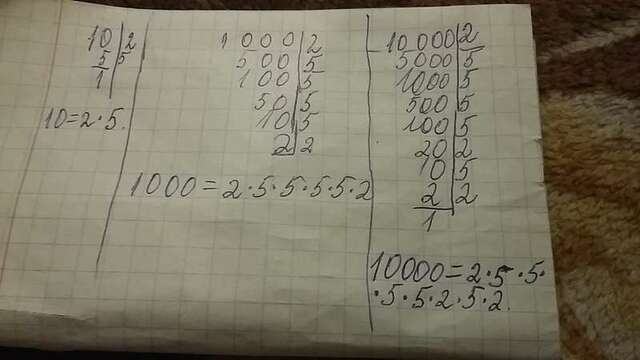 10|2
5|5
1|
10=2·5.
1000|2
500|5
100|5
50|5
10|5
2|2
1000=2·5·5·5·5·2
10000|2
5000|5
1000|5
500|5
100|5
20|2
10|5
2|2
1|
10000=2·5·5·
·5·5·2·5·2.